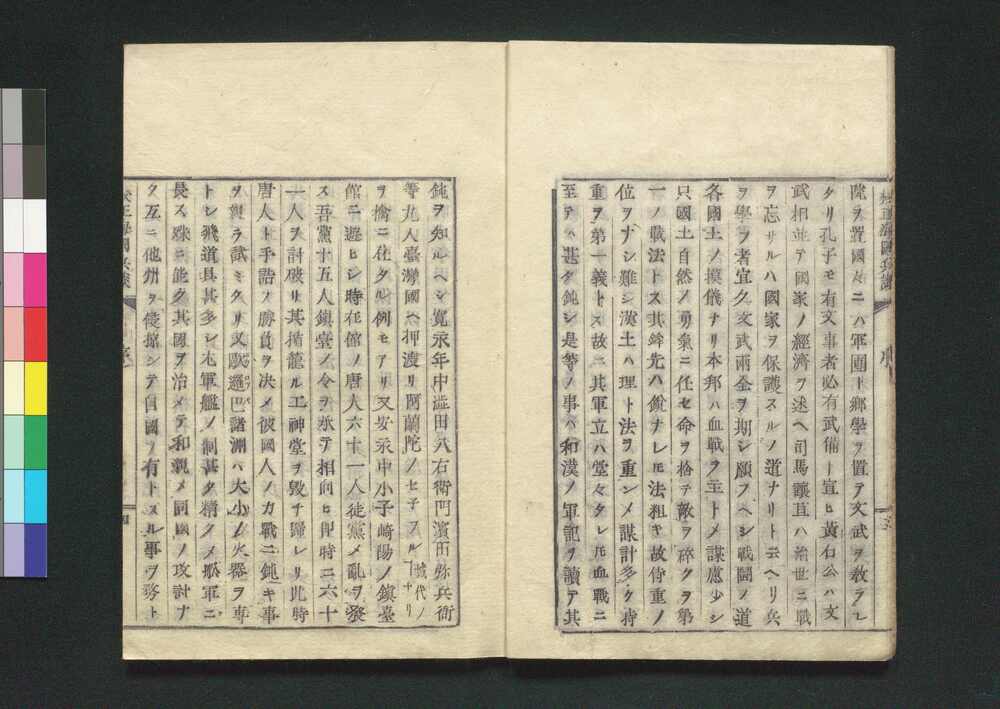 校正海國兵談
序
陞ヲ置國々ニハ軍團ト鄉學ヲ置テ文武ヲ教ラレ
タリ孔子モ有文事者必有武備ト宣ヒ黃石公ハ文
武相並テ國家ノ經濟ヲ述ヘ司馬穰苴ハ治世ニ戰
ヲ忘サルハ國家ヲ保護スルノ道ナリト云ヘリ兵
ヲ學フ者宜ク文武兩全ヲ期シ願フヘシ戰鬪ノ道
各國土ノ摸儀ナリ本邦ハ血戰ヲ主トメ謀慮少シ
只國土自然ノ勇氣ニ任セ命ヲ捨テ敵ヲ碎クヲ第
一ノ戰法トス其鋒先ハ銳ナレ𪜈法粗キ故侍重ノ
位ヲナシ難シ漢土ハ理ト法ヲ重シメ謀計多ク持
重ヲ第一義トス故ニ其軍立ハ堂々タレ𪜈血戰ニ
至テハ甚タ鈍シ是等ノ事ハ和漢ノ軍記ヲ讀テ其
鈍ヲ知ルヘシ寬永年中澁田八右衞門濱田弥兵衞
等九人臺灣國ヘ押渡リ阿蘭陀ノセ子フル 城代ノヿナリ
ヲ擒ニ仕タル例モアリ又安永中小子崎陽ノ鎭臺
館ニ遊ヒシ時在館ノ唐人六十一人徒黨メ亂ヲ發
ス吾黨十五人鎭臺ノ令ヲ承テ相向ヒ即時ニ六十
一人ヲ討破リ其楯籠ル工神堂ヲ毀チ歸レリ此時
唐人ト手詰ノ勝負ヲ決メ彼國人ノカ戰ニ鈍キ事
ヲ親ラ試ミタリ又歐邏巴諸洲ハ大小ノ火器ヲ專
トシ飛道具甚多シ尤軍艦ノ制甚タ精クメ舩軍ニ
長ス殊ニ能ク其國ヲ治メテ和親メ同國ノ攻討ナ
ク互ニ他州ヲ侵掠シテ自國ノ有トスル事ヲ務ト
校正海國兵談
序
四